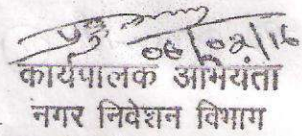 06/02/16
कार्यपालक अभियंता
नगर निवेशन विभाग